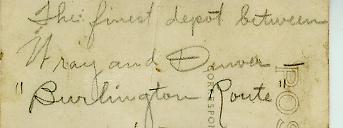 The finest depot between
Wray and Denver —
"Burlington Route"